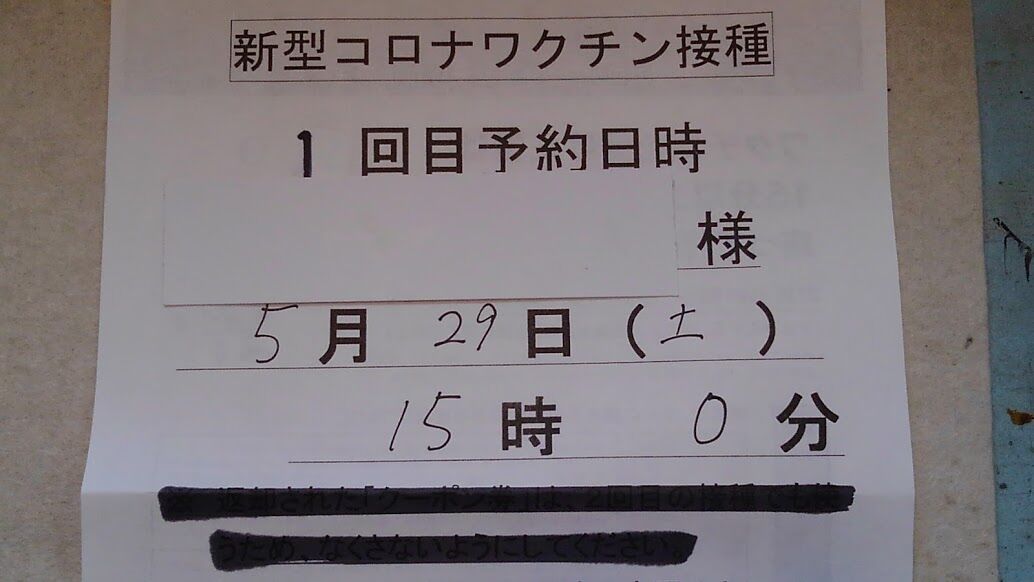 新型コロナワクチン接種
1 回目予約日時
様
5月29日(土)
15時0分
※ 返却された「クーポン券」は、2回目の接種でも使
うため、なくさないようにしてください。